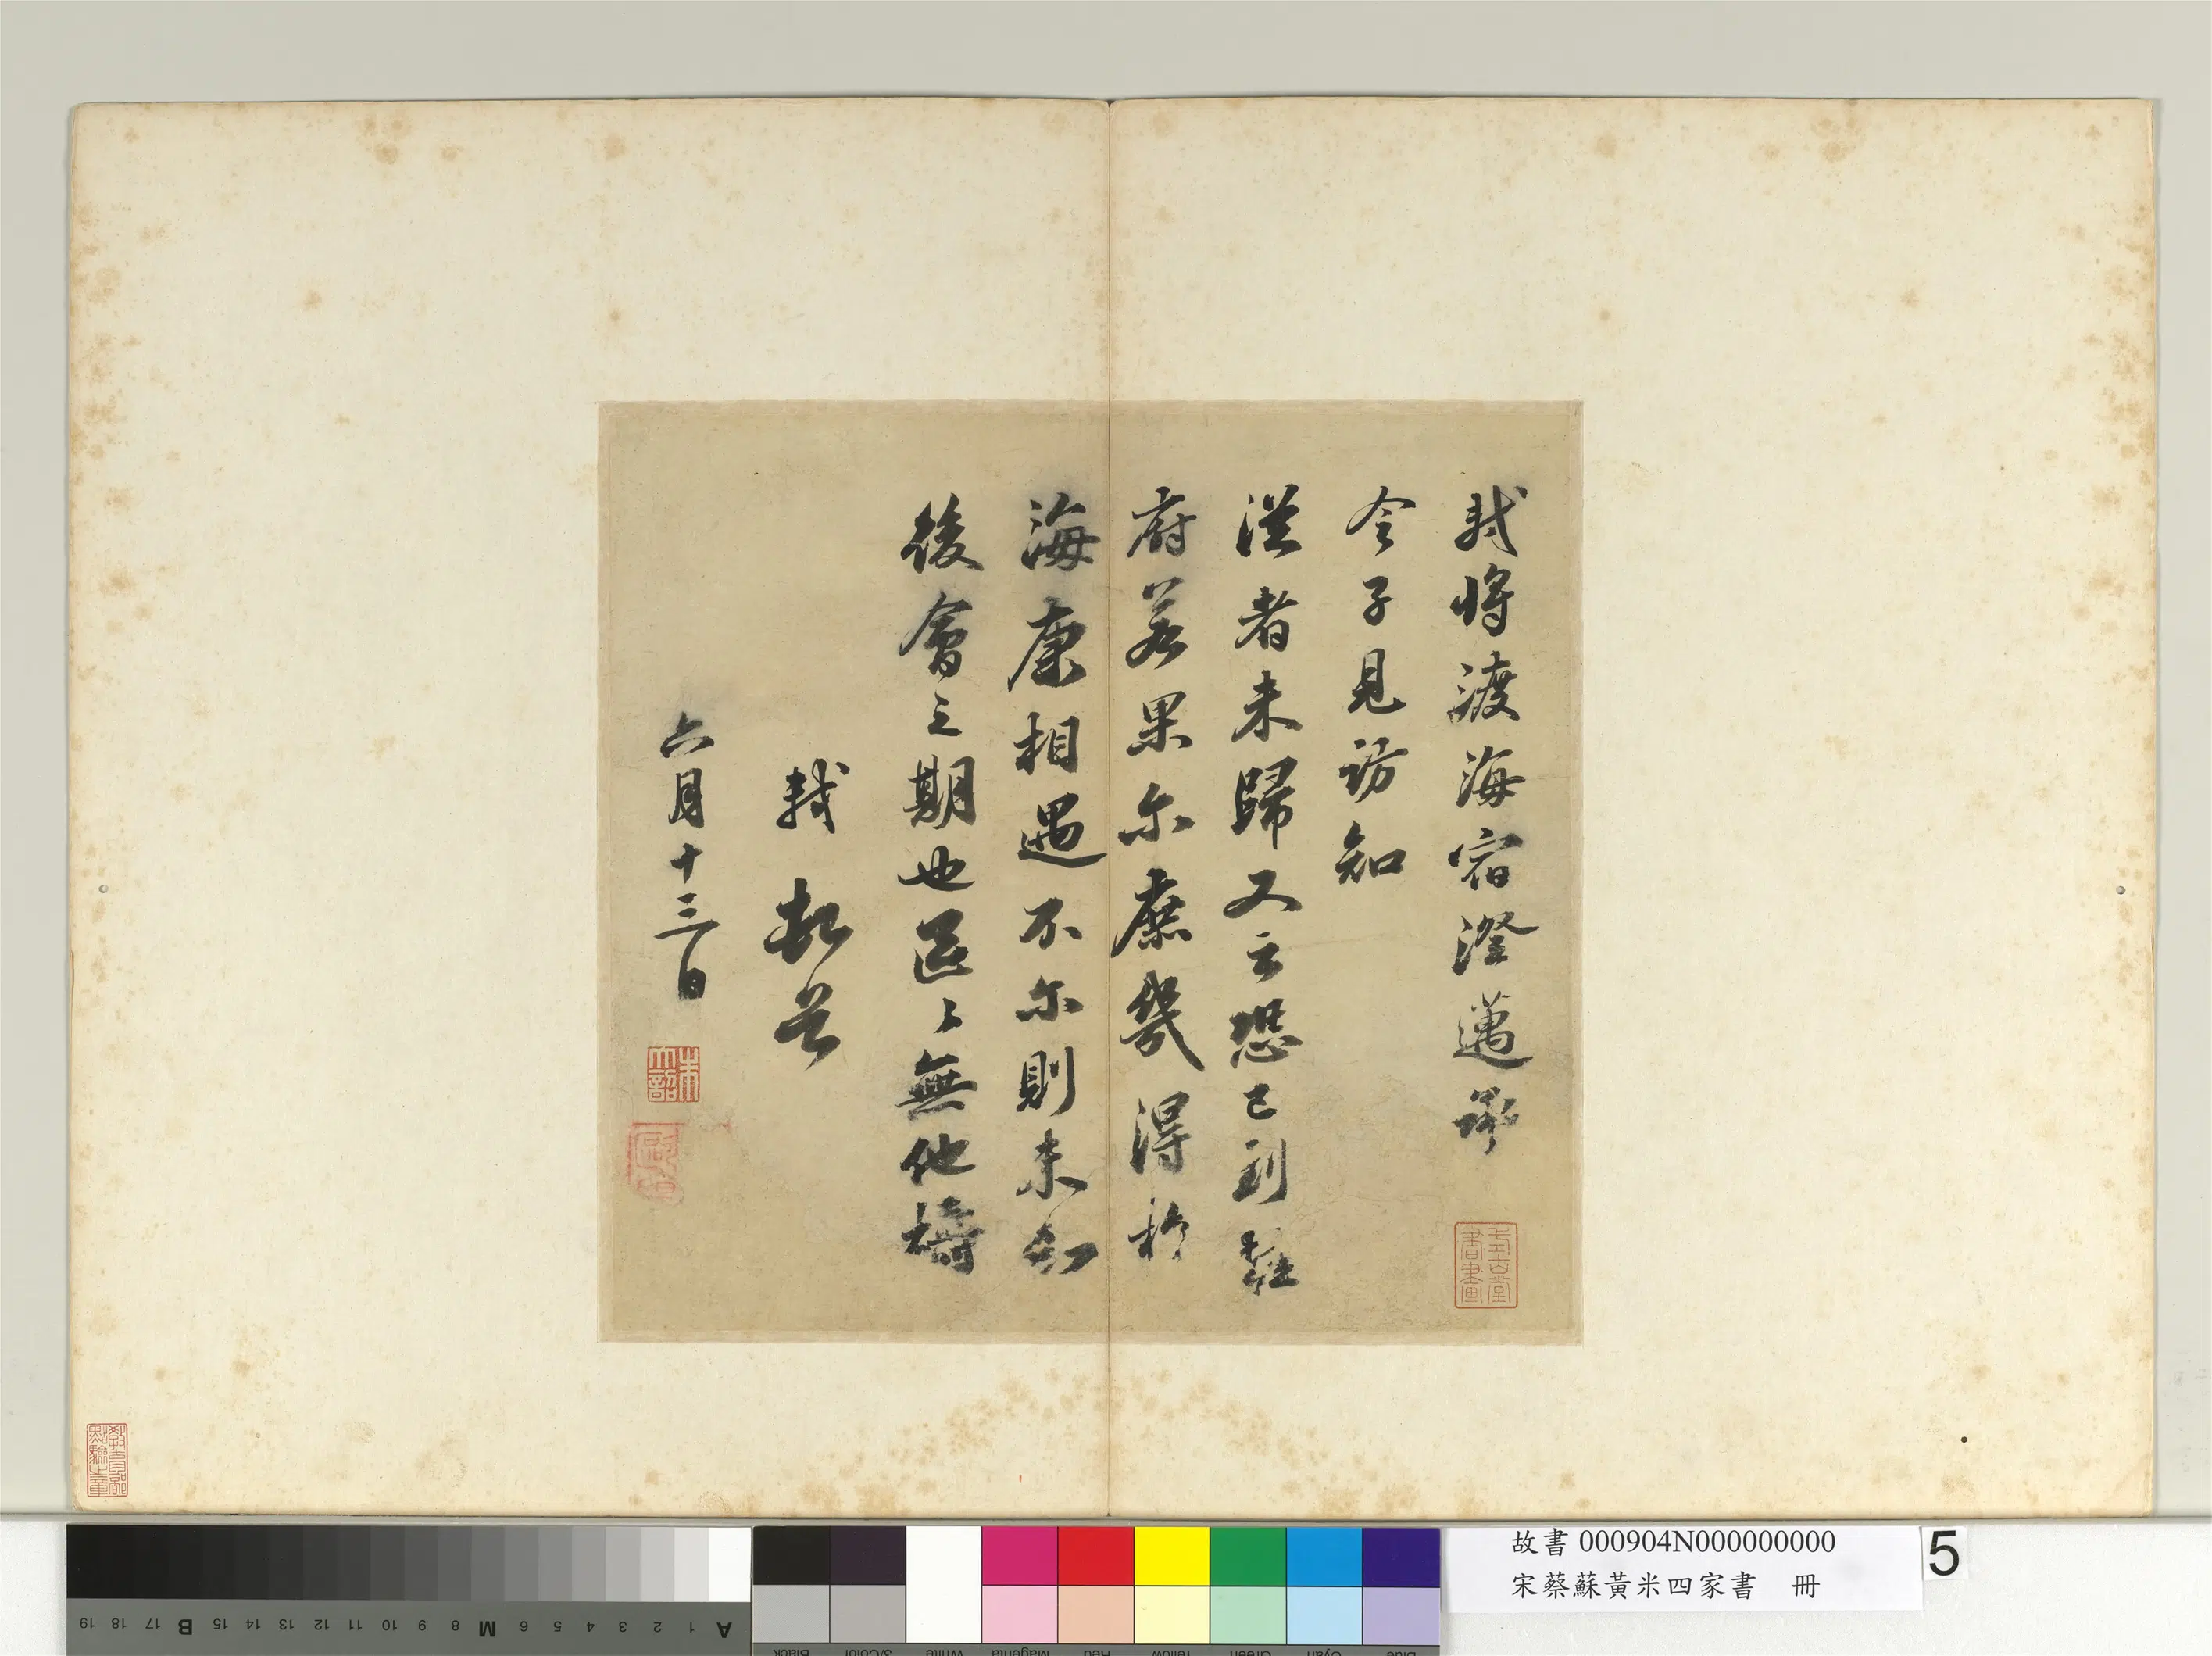 軾將渡海宿澄邁承
令子見訪知
從者未歸又云恐已到桂
府若果尔庶幾得於
海康相遇不尔則未知
後會之期也區々無他禱
軾頓首
六月十三日
故書 000904N000000000
宋蔡蘇黃米四家書 冊
5
A 1 2 3 4 5 6 M 8 9 10 11 12 13 14 15 B 17 18 19
Black 3/Color White Magenta Red Yellow Green Cyan Blue